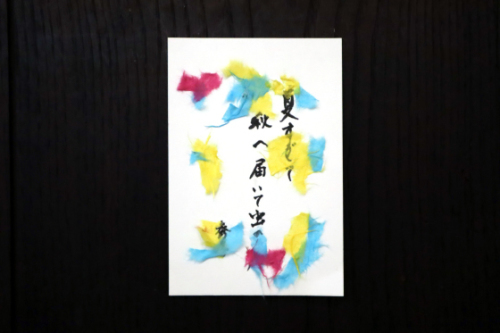 夏すぎて
秋へ届いて虫の